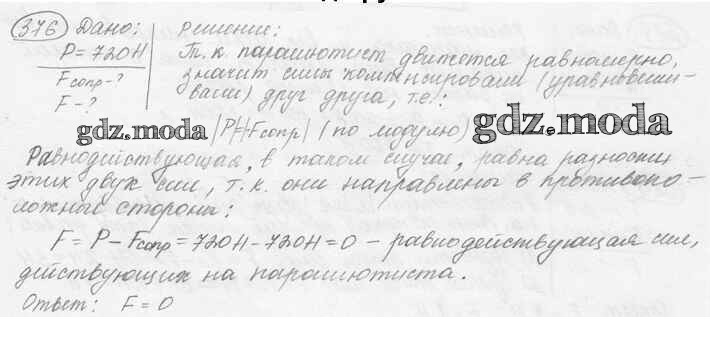 376 Дано: Решение:
P = 720Н Т.к. парашютист движется равномерно,
Fсопр - ? значит силы компенсировали (уравновеши-
F - ? вали) друг друга, т.е.:
gdz.moda |P|=|Fсопр| (по модулю) gdz.moda
Равнодействующая, в таком случае, равна разности
этих двух сил, т.к. они направлены в противопо-
ложные стороны:
F = P - Fсопр = 720Н - 720Н = 0 - равнодействующая сил,
действующих на парашютиста.
Ответ: F = 0